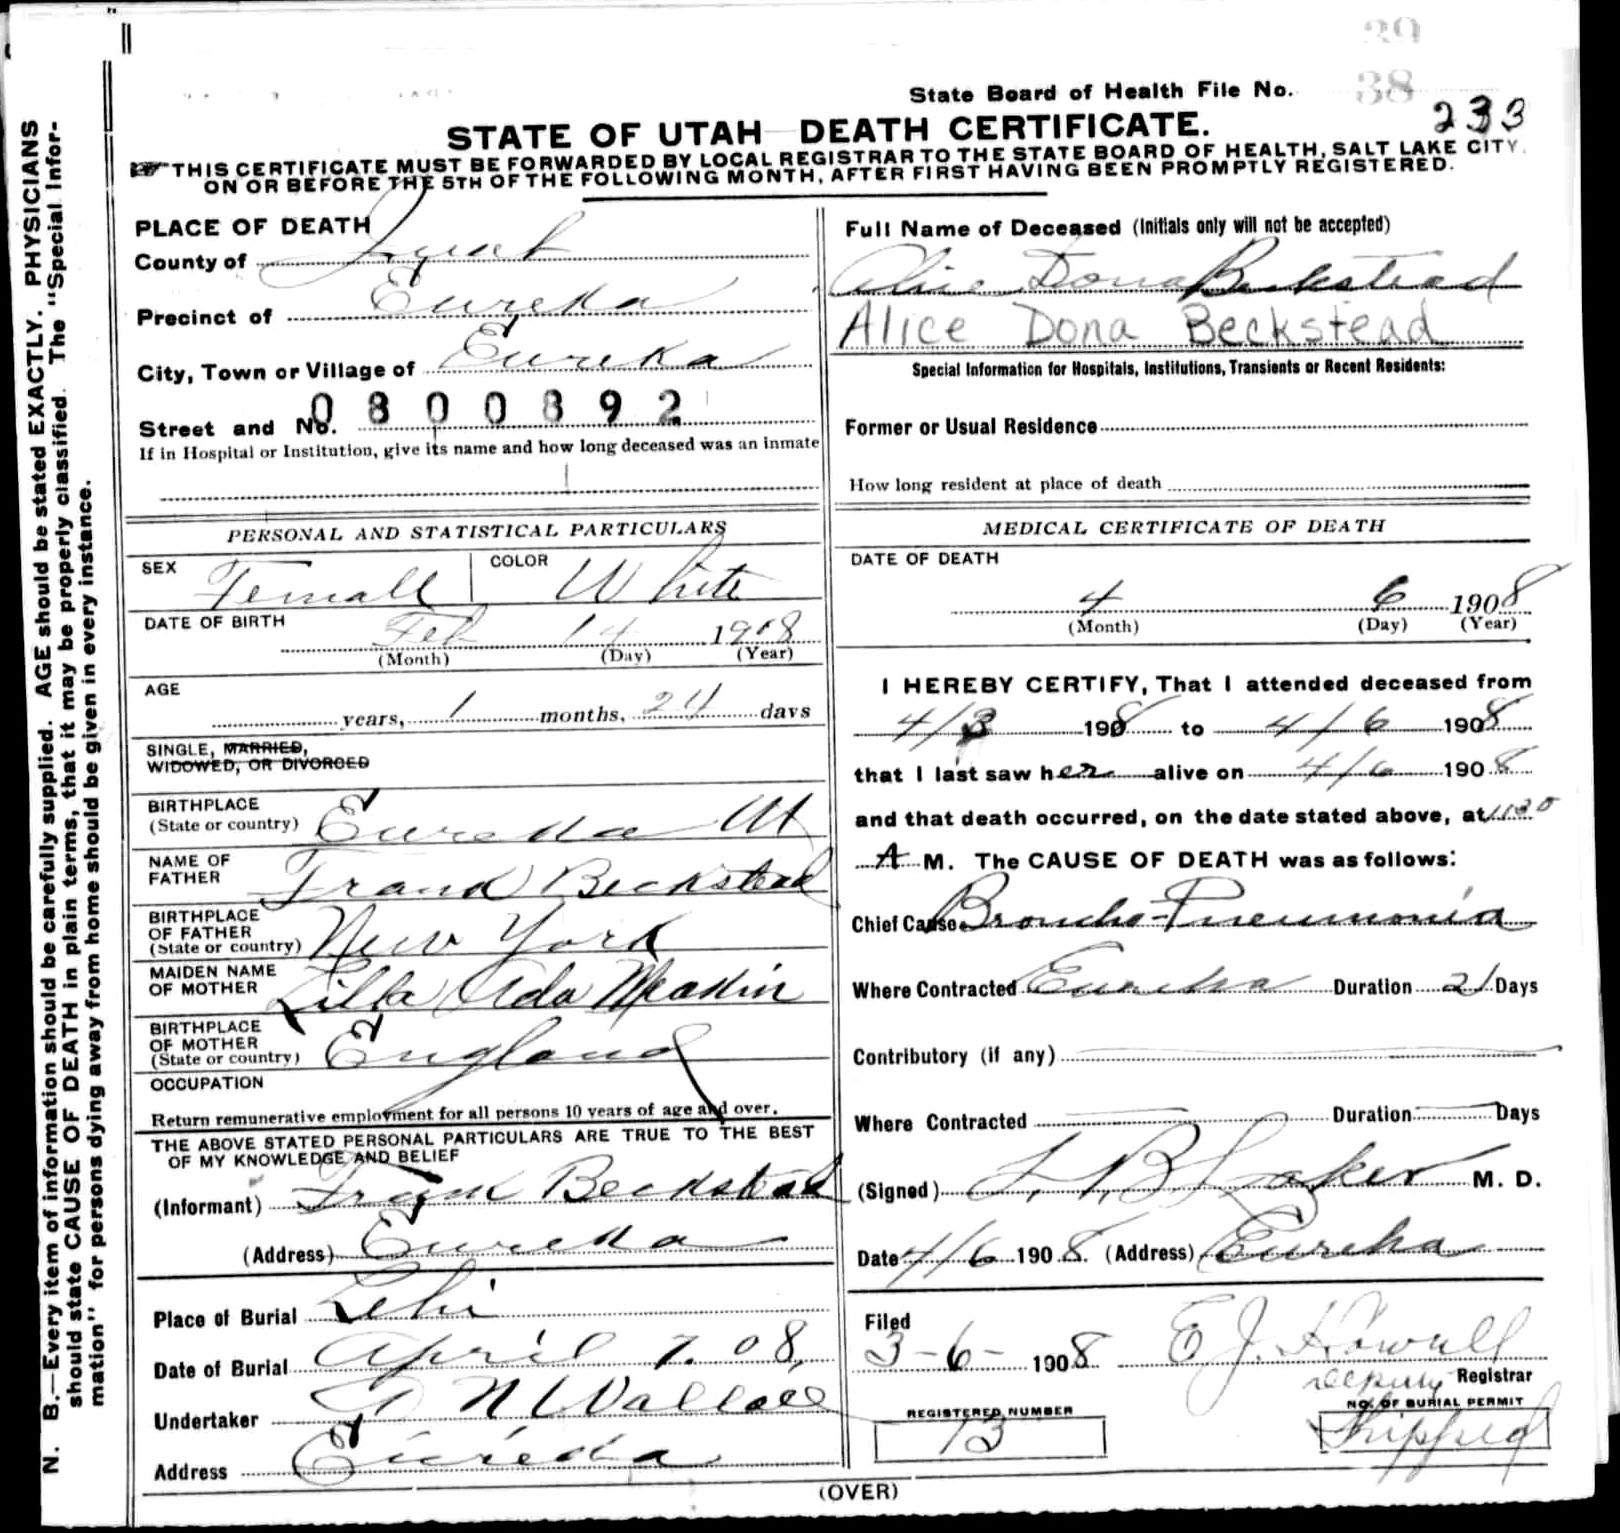 39
38
State Board of Health File No.
233
STATE OF UTAH DEATH CERTIFICATE.
THIS CERTIFICATE MUST BE FORWARDED BY LOCAL REGISTRAR TO THE STATE BOARD OF HEALTH, SALT LAKE CITY,
ON OR BEFORE THE 5TH OF THE FOLLOWING MONTH, AFTER FIRST HAVING BEEN PROMPTLY REGISTERED.
N. B.—Every item of information should be carefully supplied. AGE should be stated EXACTLY. PHYSICIANS
should state CAUSE OF DEATH in plain terms, that it may be properly classified. The "Special Infor-
mation" for persons dying away from home should be given in every instance.
PLACE OF DEATH
County of
Precinct of Eureka
City, Town or Village of Eureka
Street and No. 0800892
If in Hospital or Institution, give its name and how long deceased was an inmate
PERSONAL AND STATISTICAL PARTICULARS
SEX Female COLOR White
DATE OF BIRTH Feb 14 1908
(Month) (Day) (Year)
AGE
years, 1 months, 24 days
SINGLE, MARRIED,
WIDOWED, OR DIVORCED
BIRTHPLACE
(State or country) Eureka Ut
NAME OF
FATHER Frank Beckstead
BIRTHPLACE
OF FATHER
(State or country) New York
MAIDEN NAME
OF MOTHER Lilla Ada
BIRTHPLACE
OF MOTHER
(State or country) England
OCCUPATION
Return remunerative employment for all persons 10 years of age and over.
THE ABOVE STATED PERSONAL PARTICULARS ARE TRUE TO THE BEST
OF MY KNOWLEDGE AND BELIEF
(Informant) Frank Beckstead
(Address) Eureka
Place of Burial Lehi
Date of Burial April 7. 08,
Undertaker N Wallace
Address Eureka
Full Name of Deceased (Initials only will not be accepted)
Alice Dona Beckstead
Alice Dona Beckstead
Special Information for Hospitals, Institutions, Transients or Recent Residents:
Former or Usual Residence
How long resident at place of death
MEDICAL CERTIFICATE OF DEATH
DATE OF DEATH
4 6 1908
(Month) (Day) (Year)
I HEREBY CERTIFY, That I attended deceased from
4/3 1908 to 4/6 1908
that I last saw her alive on 4/6 1908
and that death occurred, on the date stated above, at 1130
A M. The CAUSE OF DEATH was as follows:
Chief Cause Broncho-Pneumonia
Where Contracted Eureka Duration 21 Days
Contributory (if any)
Where Contracted Duration Days
(Signed) M. D.
Date 4/6 1908 (Address) Eureka
Filed
3-6- 1908 E J. Howell
Deputy Registrar
REGISTERED NUMBER
13
NO. OF BURIAL PERMIT
Shipped
(OVER)